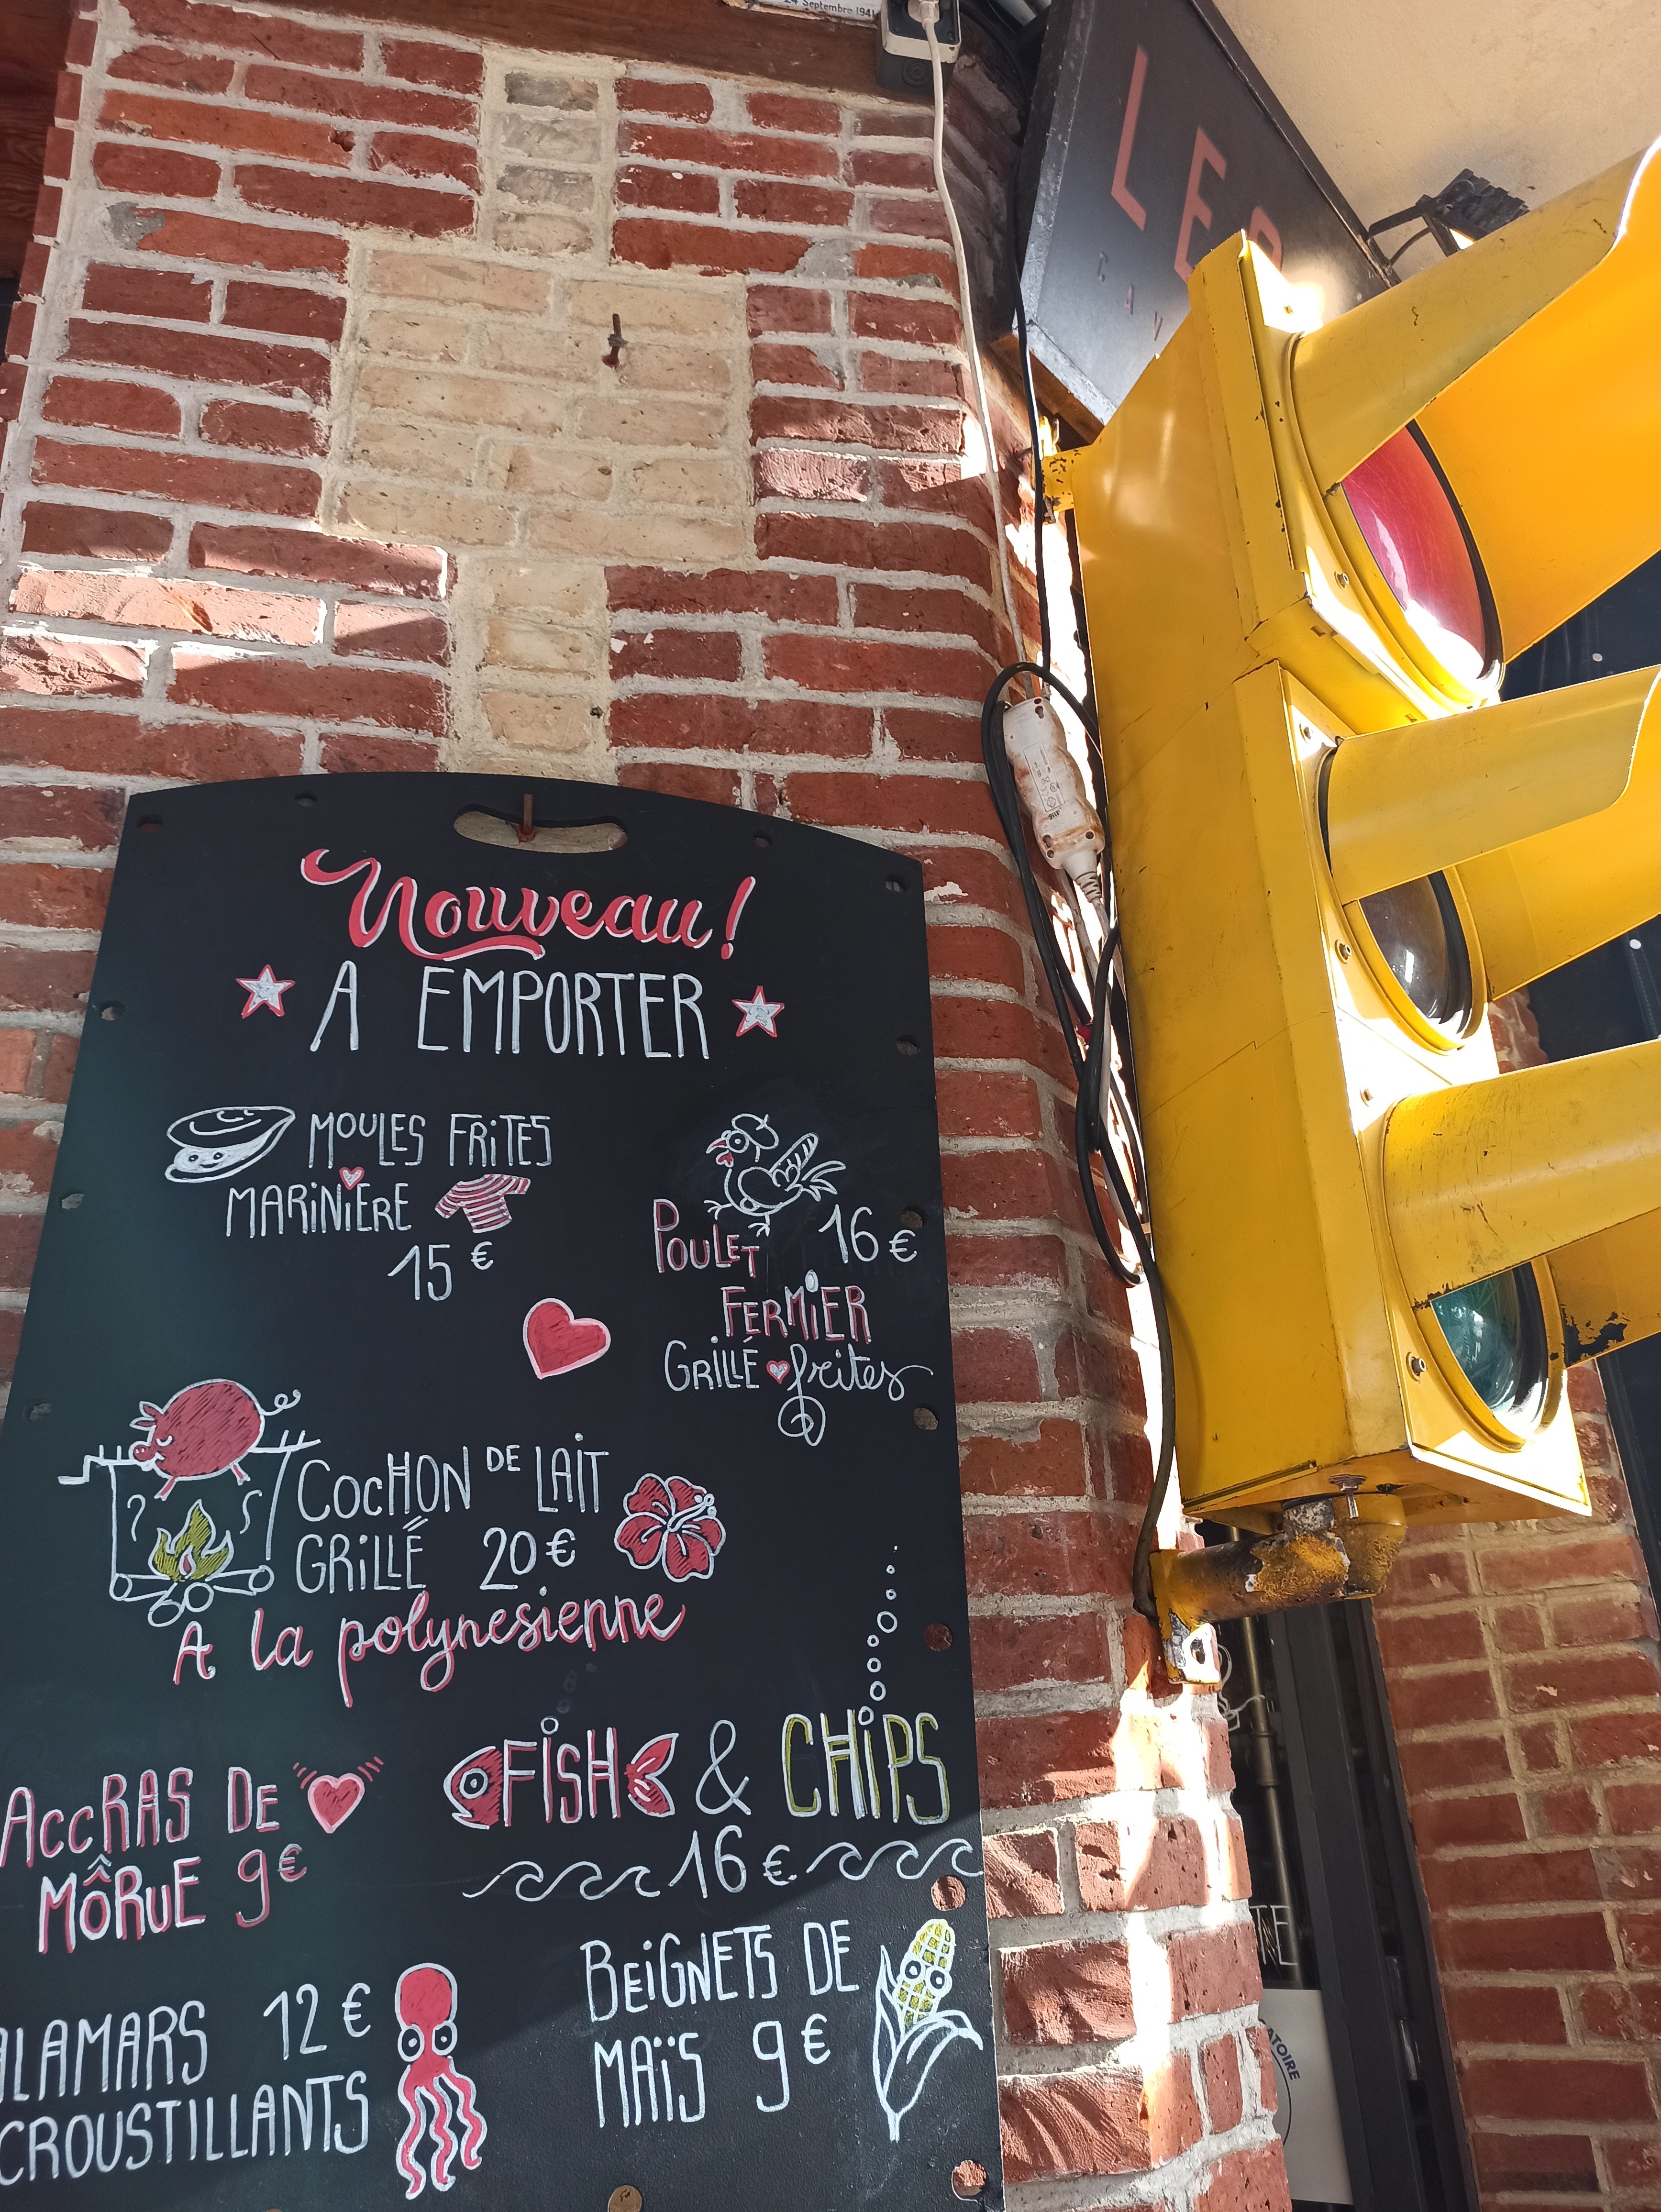 24 Septembre 1941
LE
CAV
Nouveau!
A EMPORTER
MOULES FRITES
MARINIÈRE
15 €
POULET 16 €
FERMIER
GRILLÉ frites
COCHON DE LAIT
GRILLÉ 20 €
A la polynesienne
ACCRAS DE
MÔRUE 9 €
FISH & CHIPS
16 €
ALAMARS 12 €
CROUSTILLANTS
BEIGNETS DE
MAÏS 9 €
TE
ATOIRE